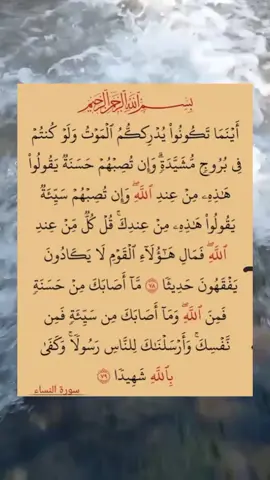 بِسْمِ ٱللَّهِ ٱلرَّحْمَٰنِ ٱلرَّحِيمِ
أَيْنَمَا تَكُونُوا۟ يُدْرِككُّمُ ٱلْمَوْتُ وَلَوْ كُنتُمْ
فِى بُرُوجٍ مُّشَيَّدَةٍ ۗ وَإِن تُصِبْهُمْ حَسَنَةٌ يَقُولُوا۟
هَـٰذِهِۦ مِنْ عِندِ ٱللَّهِ ۖ وَإِن تُصِبْهُمْ سَيِّئَةٌ
يَقُولُوا۟ هَـٰذِهِۦ مِنْ عِندِكَ ۚ قُلْ كُلٌّ مِّنْ عِندِ
ٱللَّهِ ۖ فَمَالِ هَـٰٓؤُلَآءِ ٱلْقَوْمِ لَا يَكَادُونَ
يَفْقَهُونَ حَدِيثًا ٧٨ مَّآ أَصَابَكَ مِنْ حَسَنَةٍ
فَمِنَ ٱللَّهِ ۖ وَمَآ أَصَابَكَ مِن سَيِّئَةٍ فَمِن
نَّفْسِكَ ۚ وَأَرْسَلْنَـٰكَ لِلنَّاسِ رَسُولًا ۚ وَكَفَىٰ
بِٱللَّهِ شَهِيدًا ٧٩
سورة النساء